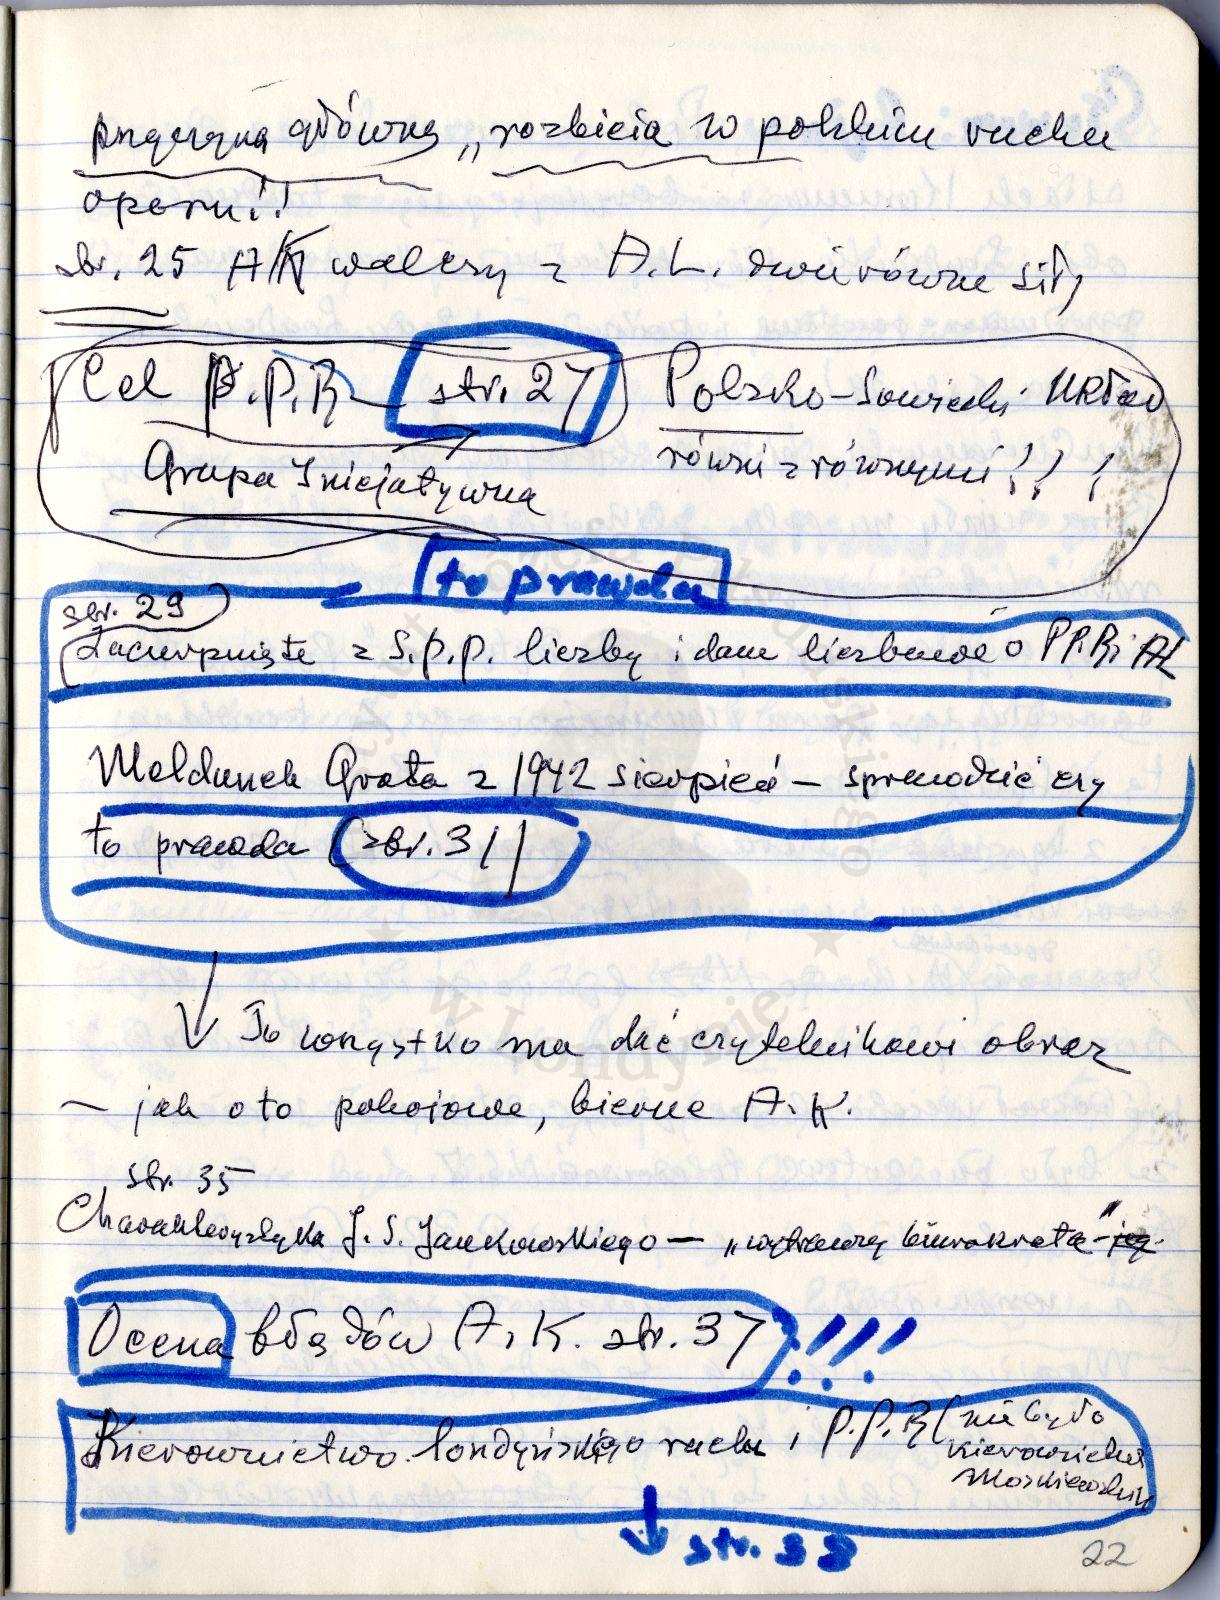 przyczyną główną „rozbicia w polskim ruchu
oporu!!
str. 25 AK walczy z A.L. dwie równe siły
Cel P.P.R. str. 27 Polsko-Sowiecki układ
Grupa Inicjatywna równi z równymi!!!
to prawda
str. 29
Zaczerpnięte z S.P.P. liczby i dane liczbowe o PPR i AL
Meldunek Grota z 1942 sierpień – sprawdzić czy
to prawda (str. 31)
To wszystko ma dać czytelnikowi obraz
– jak oto pokojowe, bierne A.K.
str. 35
Charakterystyka J. S. Jankowskiego – „wytrawny biurokrata"
Ocena błędów A.K. str. 37 !!!
Kierownictwo londyńskiego ruchu i P.P.R (nie było
kierownictwa
moskiewskie
str. 33
22
w Londynie